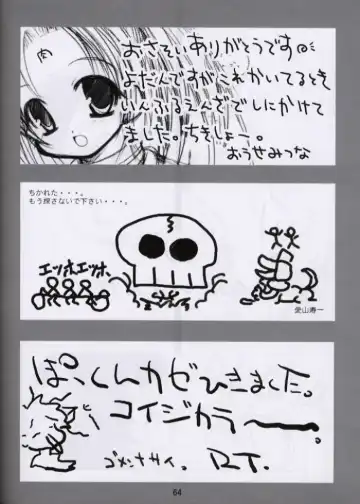 おさそいありがとうです。
よだんですがこれかいてるとき
いんふるえんざでしにかけて
ました。ちきしょー。
おうせみつな
ちかれた・・・。
もう探さないで下さい・・・。
エッホエッホ
ぼっくんカゼひきました。
コイジカラ〜ー。
ゴメンナサイ。 R.T.
64